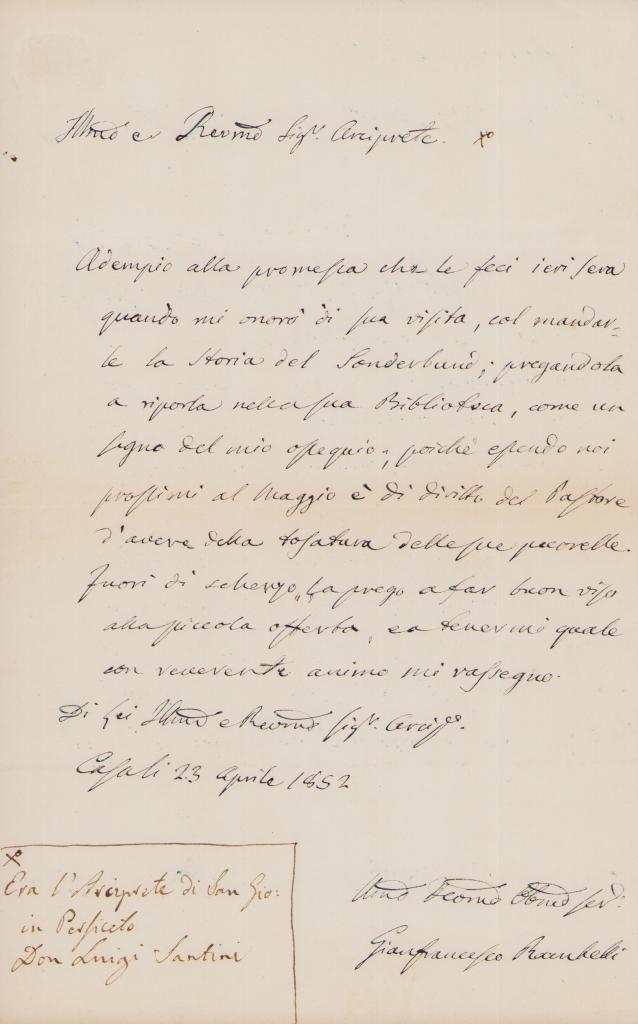 Illmo e Revmo Sigr. Arciprete.
Adempio alla promessa che le feci ieri sera
quando mi onorò di sua visita, col mandar-
le la Storia del Sonderbund; pregandola
a riporla nella sua Biblioteca, come un
segno del mio ossequio; poichè essendo noi
prossimi al Maggio è di diritto del Pastore
d'avere della tosatura delle sue pecorelle.
Fuori di scherzo, La prego a far buon viso
alla piccola offerta, ea tenermi quale
con reverente animo mi rassegno.
Di Lei Illmo e Revmo Sigr. Arcipe.
Casali 23 Aprile 1852
Umo Obmo ser:
Gianfrancesco Rambelli
Era l'Arciprete di San Gio:
in Persiceto
Don Luigi Santini